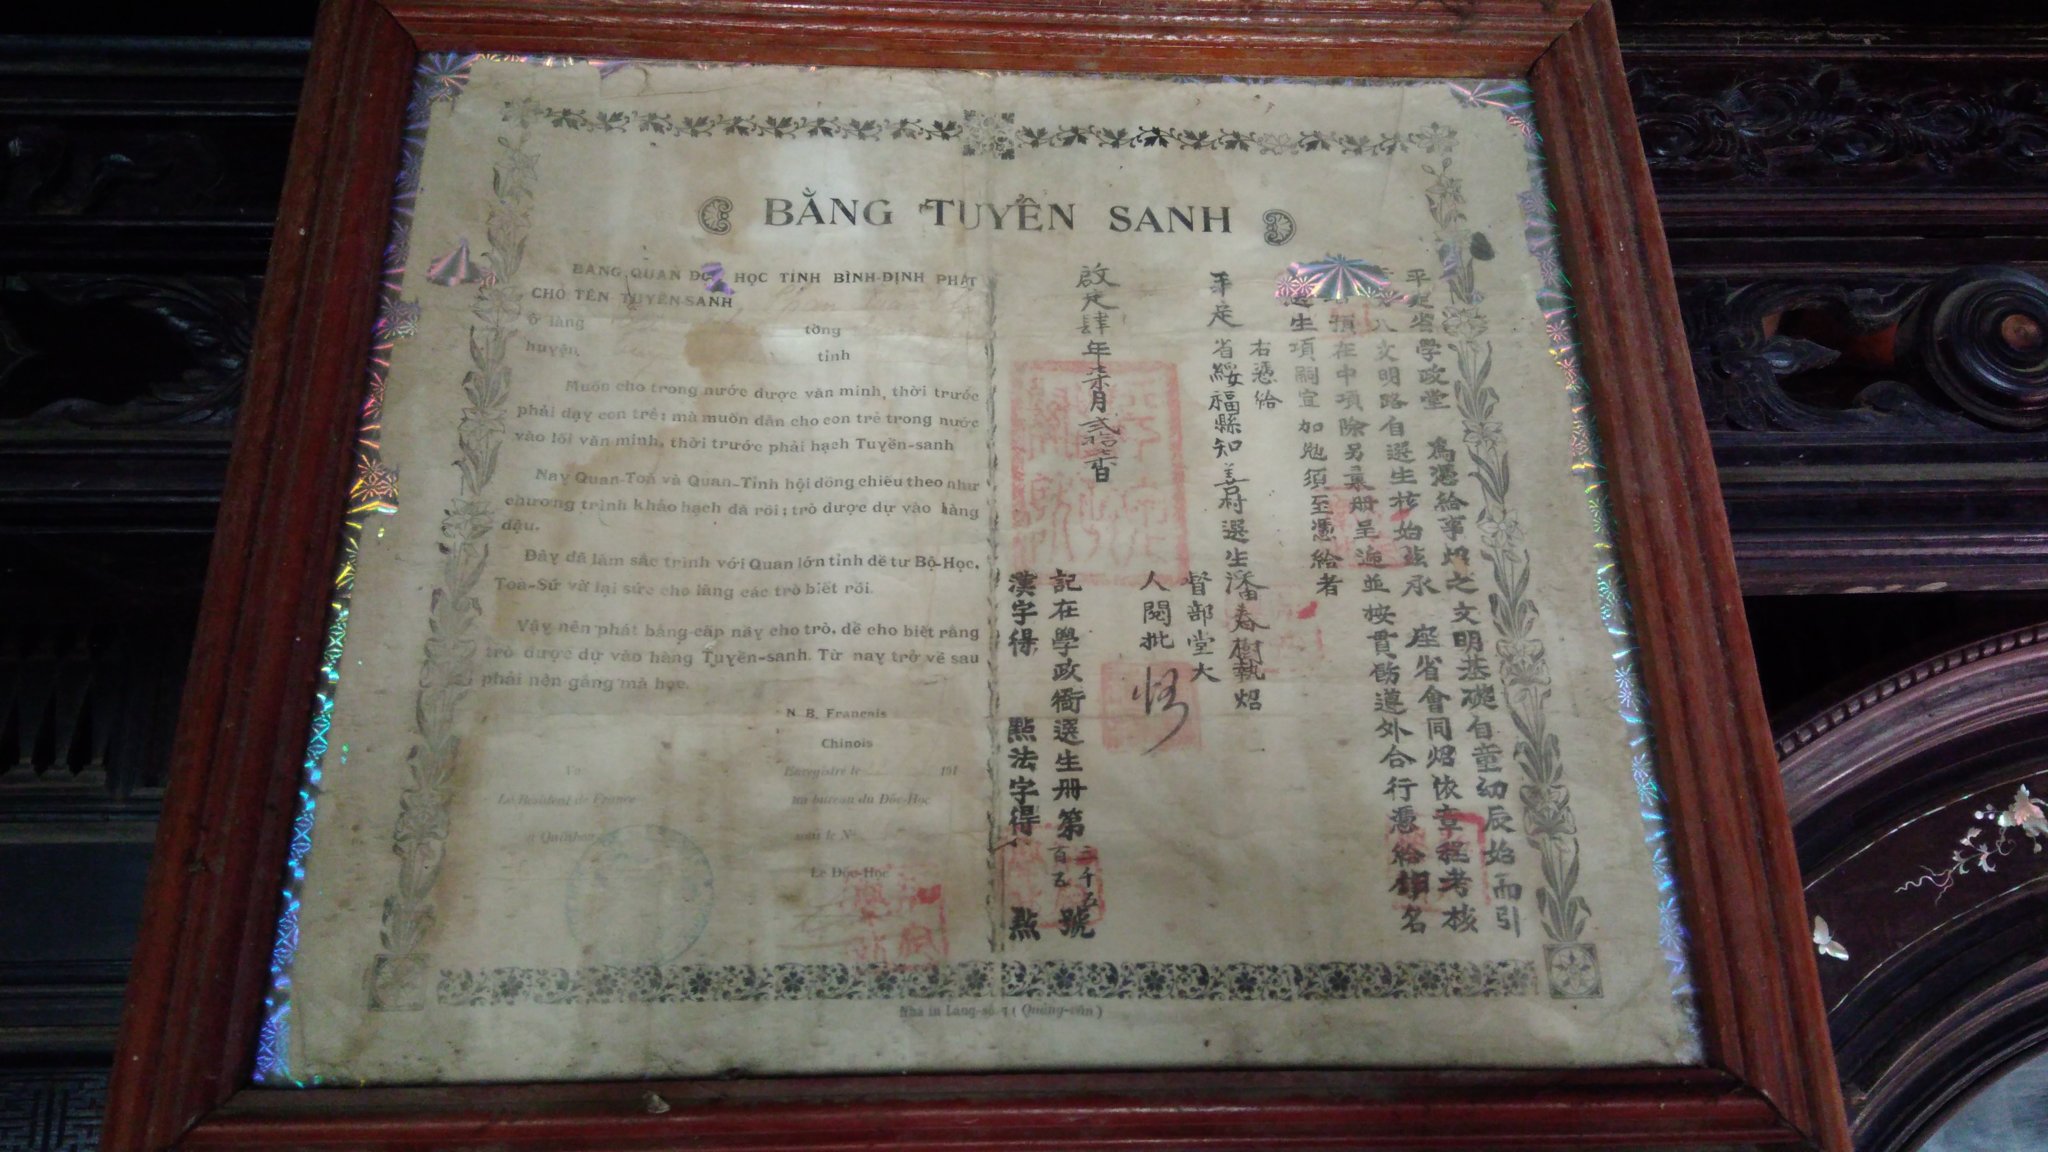 BẰNG TUYỂN SANH
BẰNG QUAN HỌC TỈNH BÌNH-ĐỊNH PHÁT
CHO TÊN TUYỂN-SANH
ở làng tổng
huyện tỉnh
Muốn cho trong nước được văn minh, thời trước
phải dạy con trẻ; mà muốn dẫn cho con trẻ trong nước
vào lối văn minh, thời trước phải hạch Tuyển-sanh
Nay Quan-Toà và Quan-Tỉnh hội đồng chiếu theo như
chương trình khảo hạch đã rồi; trò được dự vào hàng
đậu.
Đây đã làm sắc trình với Quan lớn tỉnh để tư Bộ-Học,
Toà-Sứ và lại sức cho làng các trò biết rồi.
Vậy nên phát bằng-cấp này cho trò, để cho biết rằng
trò được dự vào hàng Tuyển-sanh. Từ nay trở về sau
phải nên gắng mà học.
N. B. Français
Chinois
Vu
Le Résident de France
à Quinhon
Enregistré le 191
au bureau du Đốc-Học
sous le Nº
Le Đốc-Học
平定省學政堂 為憑給事炤之文明基礎自童幼辰始而引
入文明路自選生核始茲承 座省會同炤依章程考核
預在中項除另彙册呈 並按貫飭遵外合行憑給 名
生項嗣宜加勉須至憑給者
右憑給
平定省綏福縣知善村選生潘春樹執炤
督部堂大
人閱批
啟定肆年柒月貳拾 日
記在學政衙選生册第 號
漢字得 點法字得 點
Nhà in Làng-sô (Quảng-vân)